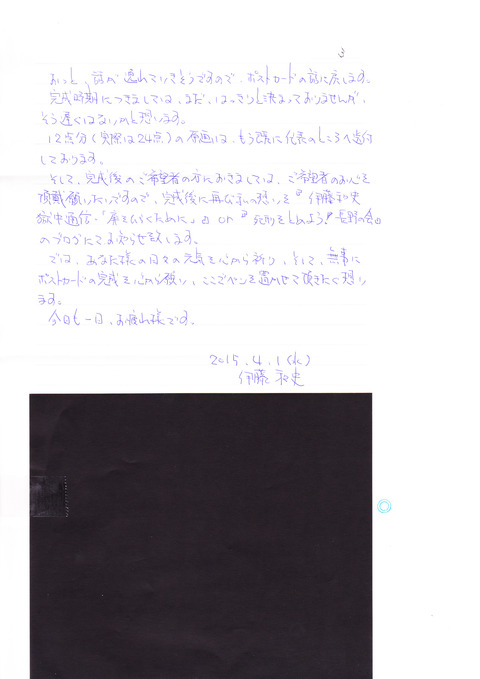 3
おっと、話が逸れていきそうですので、ポストカードの話に戻します。
完成時期につきましては、まだ、はっきりと決まっておりませんが、
そう遅くはないかと思います。
12点分(実際は24点)の原画は、もう既に代表のところへ送付
しております。
そして、完成後のご希望者の方におきましては、ご希望者のお心を
頂戴願いたいですので、完成後に再び私の想いを『伊藤和史
獄中通信・「扉をひらくために」』or『死刑をとめよう!長野の会』
のブログにてお知らせ致します。
では、あなた様の日々の元気を心から祈り、そして、無事に
ポストカードの完成を心から願い、ここでペンを置かせて頂きたく思い
ます。
今日も一日、お疲れ様です。
2015.4.1(水)
伊藤和史